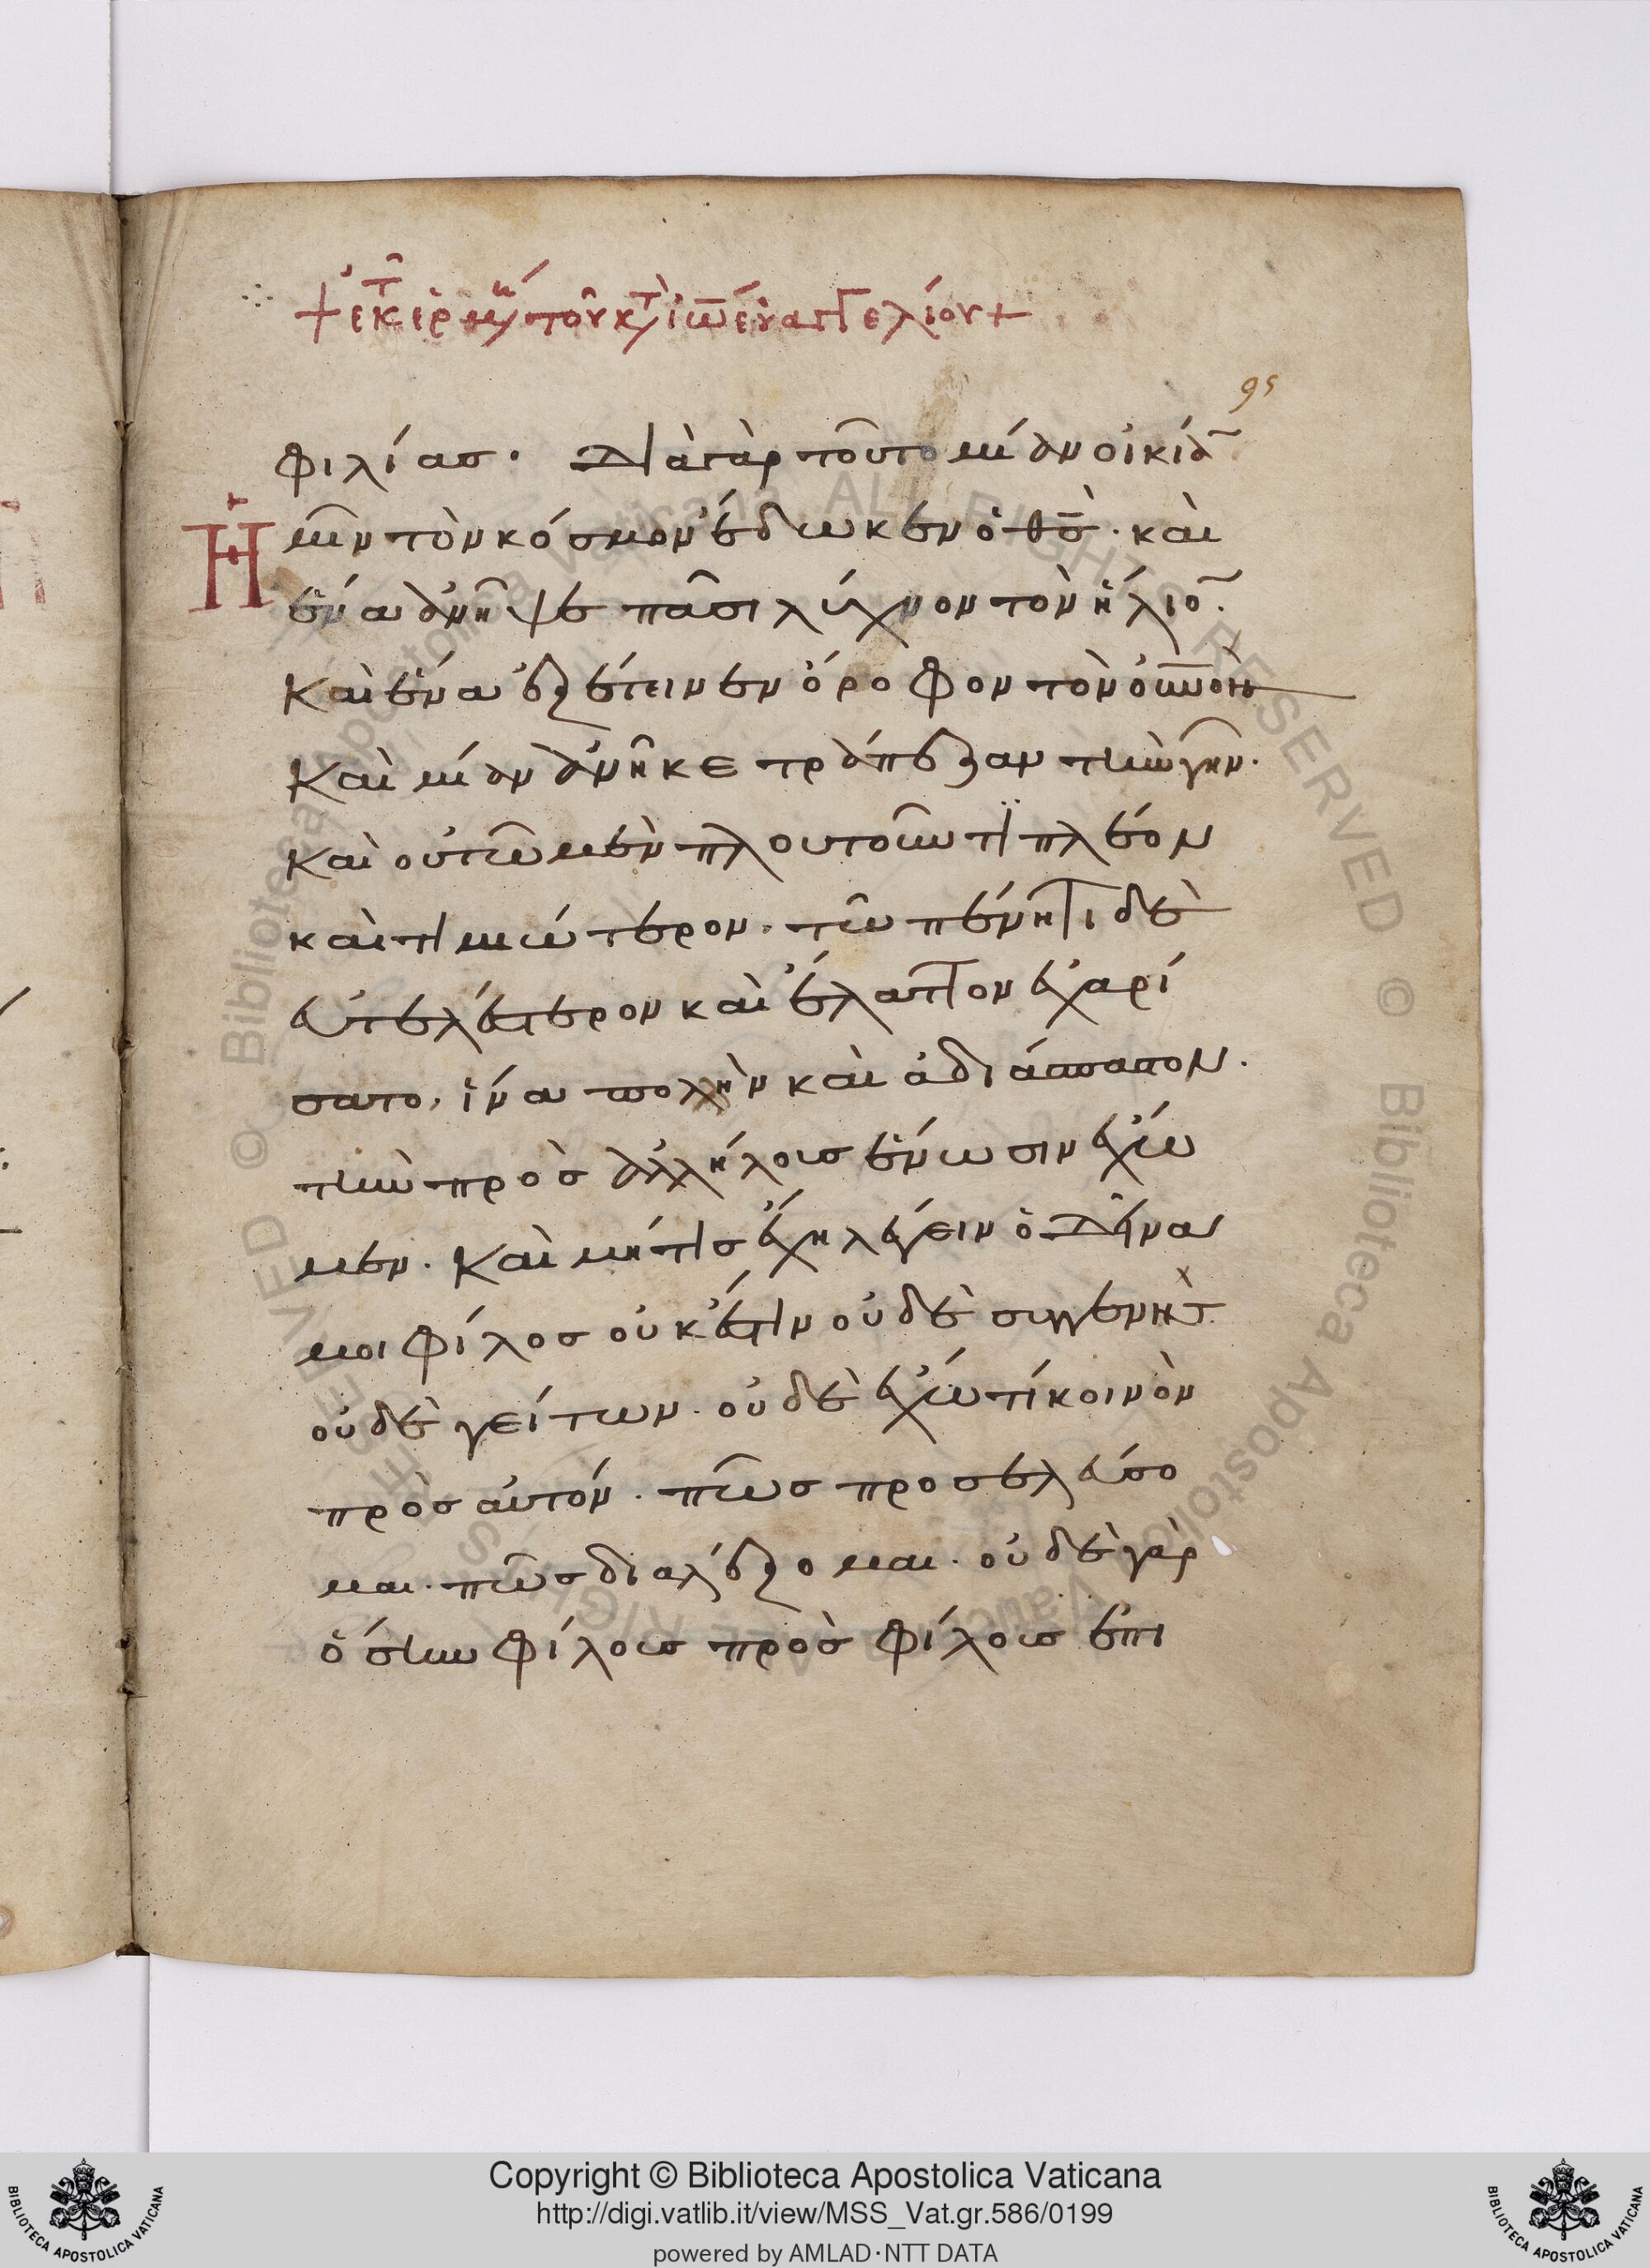 + ἐκ τ ἑρμη τοῦ κτ ἰω ἐυαγγελίου +
95
φιλίας. Διαγὰρ τοῦτο μίαν οἰκίαν
Ἡμῖν τὸν κόσμον ἔδωκεν ὁ θς. καὶ
ἕνα ἀνῆψε πᾶσι λύχνον τὸν ἥλιον.
Καὶ ἕνα ἐξέτεινεν ὄροφον τὸν οὐνον
Καὶ μίαν ἀνῆκε τράπεζαν τὴν γῆν.
Καὶ οὐ τῶ μὲν πλουτοῦντι πλέον
καὶ τιμιώτερον. τῶ πένητι δὲ
εὐτελέστερον καὶ ἔλαττον ἐχαρί
σατο, ἵνα πολλὴν καὶ ἀδιάσπαστον.
τὴν πρὸς ἀλλήλους ἕνωσιν ἔχω
μεν. Καὶ μήτις ἔχη λέγειν ὁ δεῖνα
μοι φίλος οὐκ ἔστιν οὐδὲ συγγενὴς
οὐδὲ γείτων. οὐδὲ ἔχω τί κοινὸν
πρὸς αὐτόν. πῶς προσελεύσο
μαι. πῶς διαλέξομαι. οὐδὲ γὰρ
ὅστιν φίλους πρὸς φίλους ἐπι
Copyright © Biblioteca Apostolica Vaticana
http://digi.vatlib.it/view/MSS_Vat.gr.586/0199
powered by AMLAD·NTT DATA
BIBLIOTECA APOSTOLICA VATICANA
BIBLIOTECA APOSTOLICA VATICANA